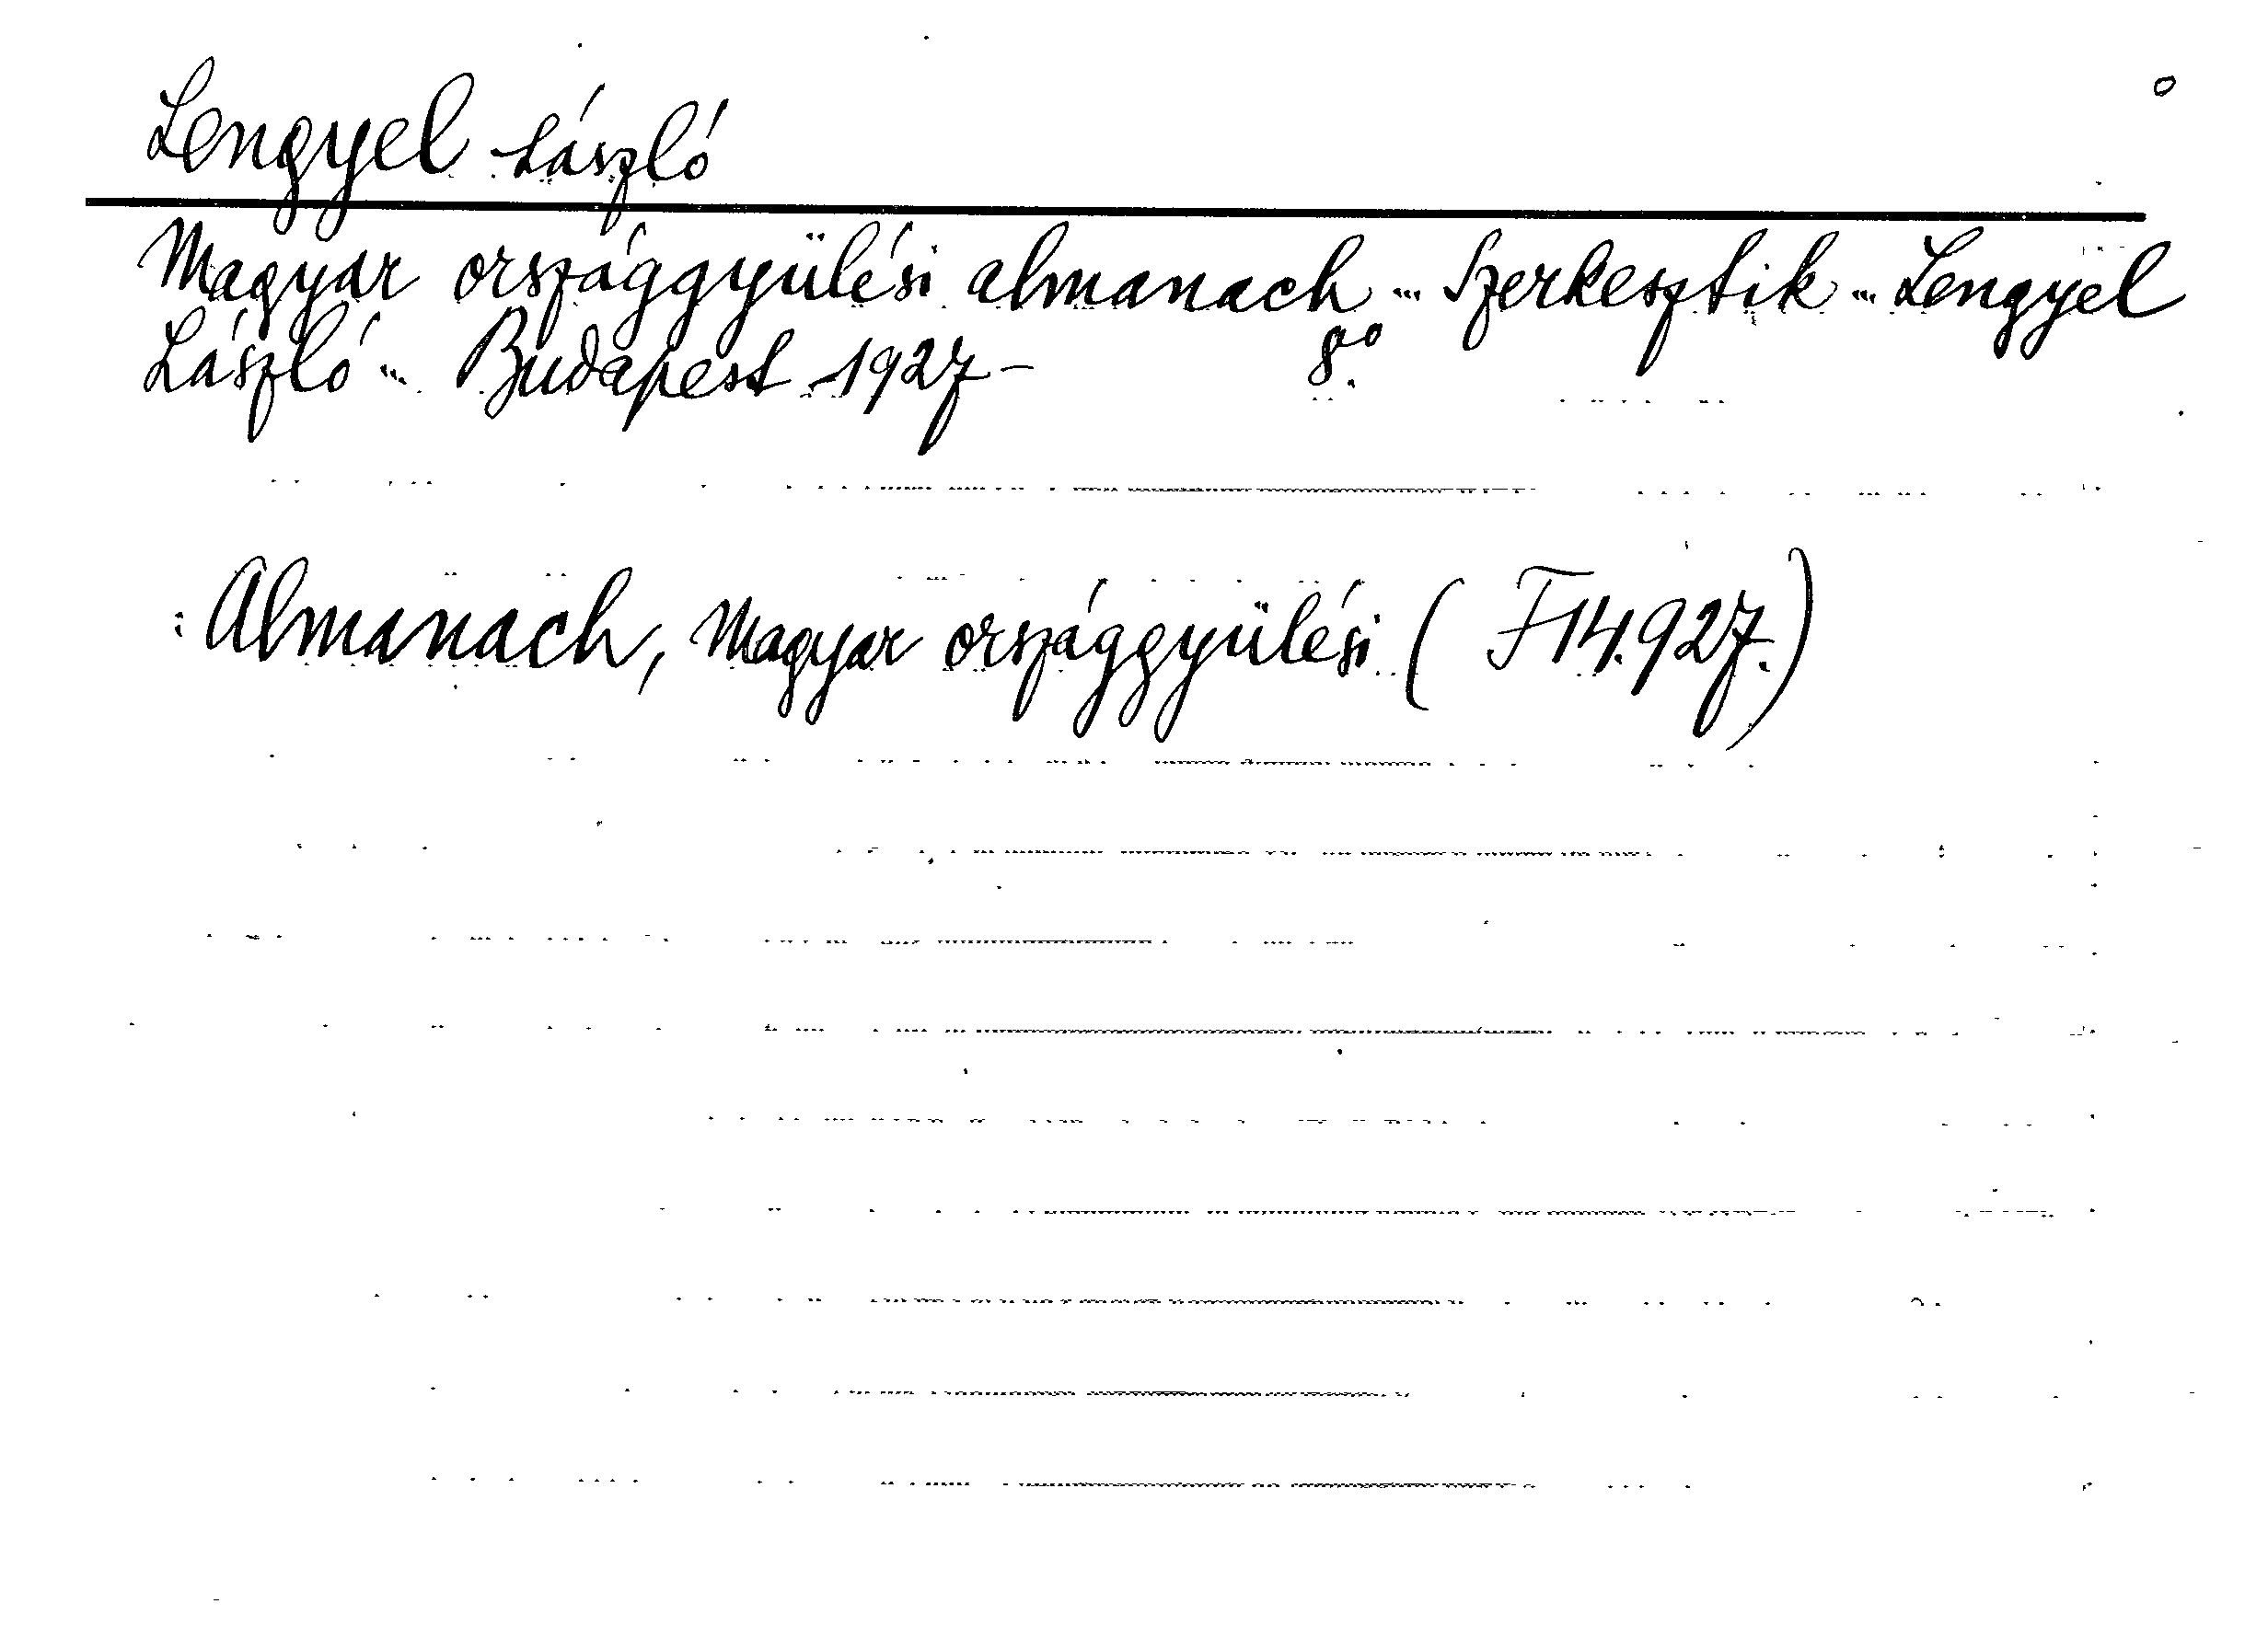 Lengyel László
Magyar országgyülési almanach ... Szerkesztik ... Lengyel
László ... Budapest 1927- 8°.
: Almanach, Magyar országgyülési ( F14.927.)